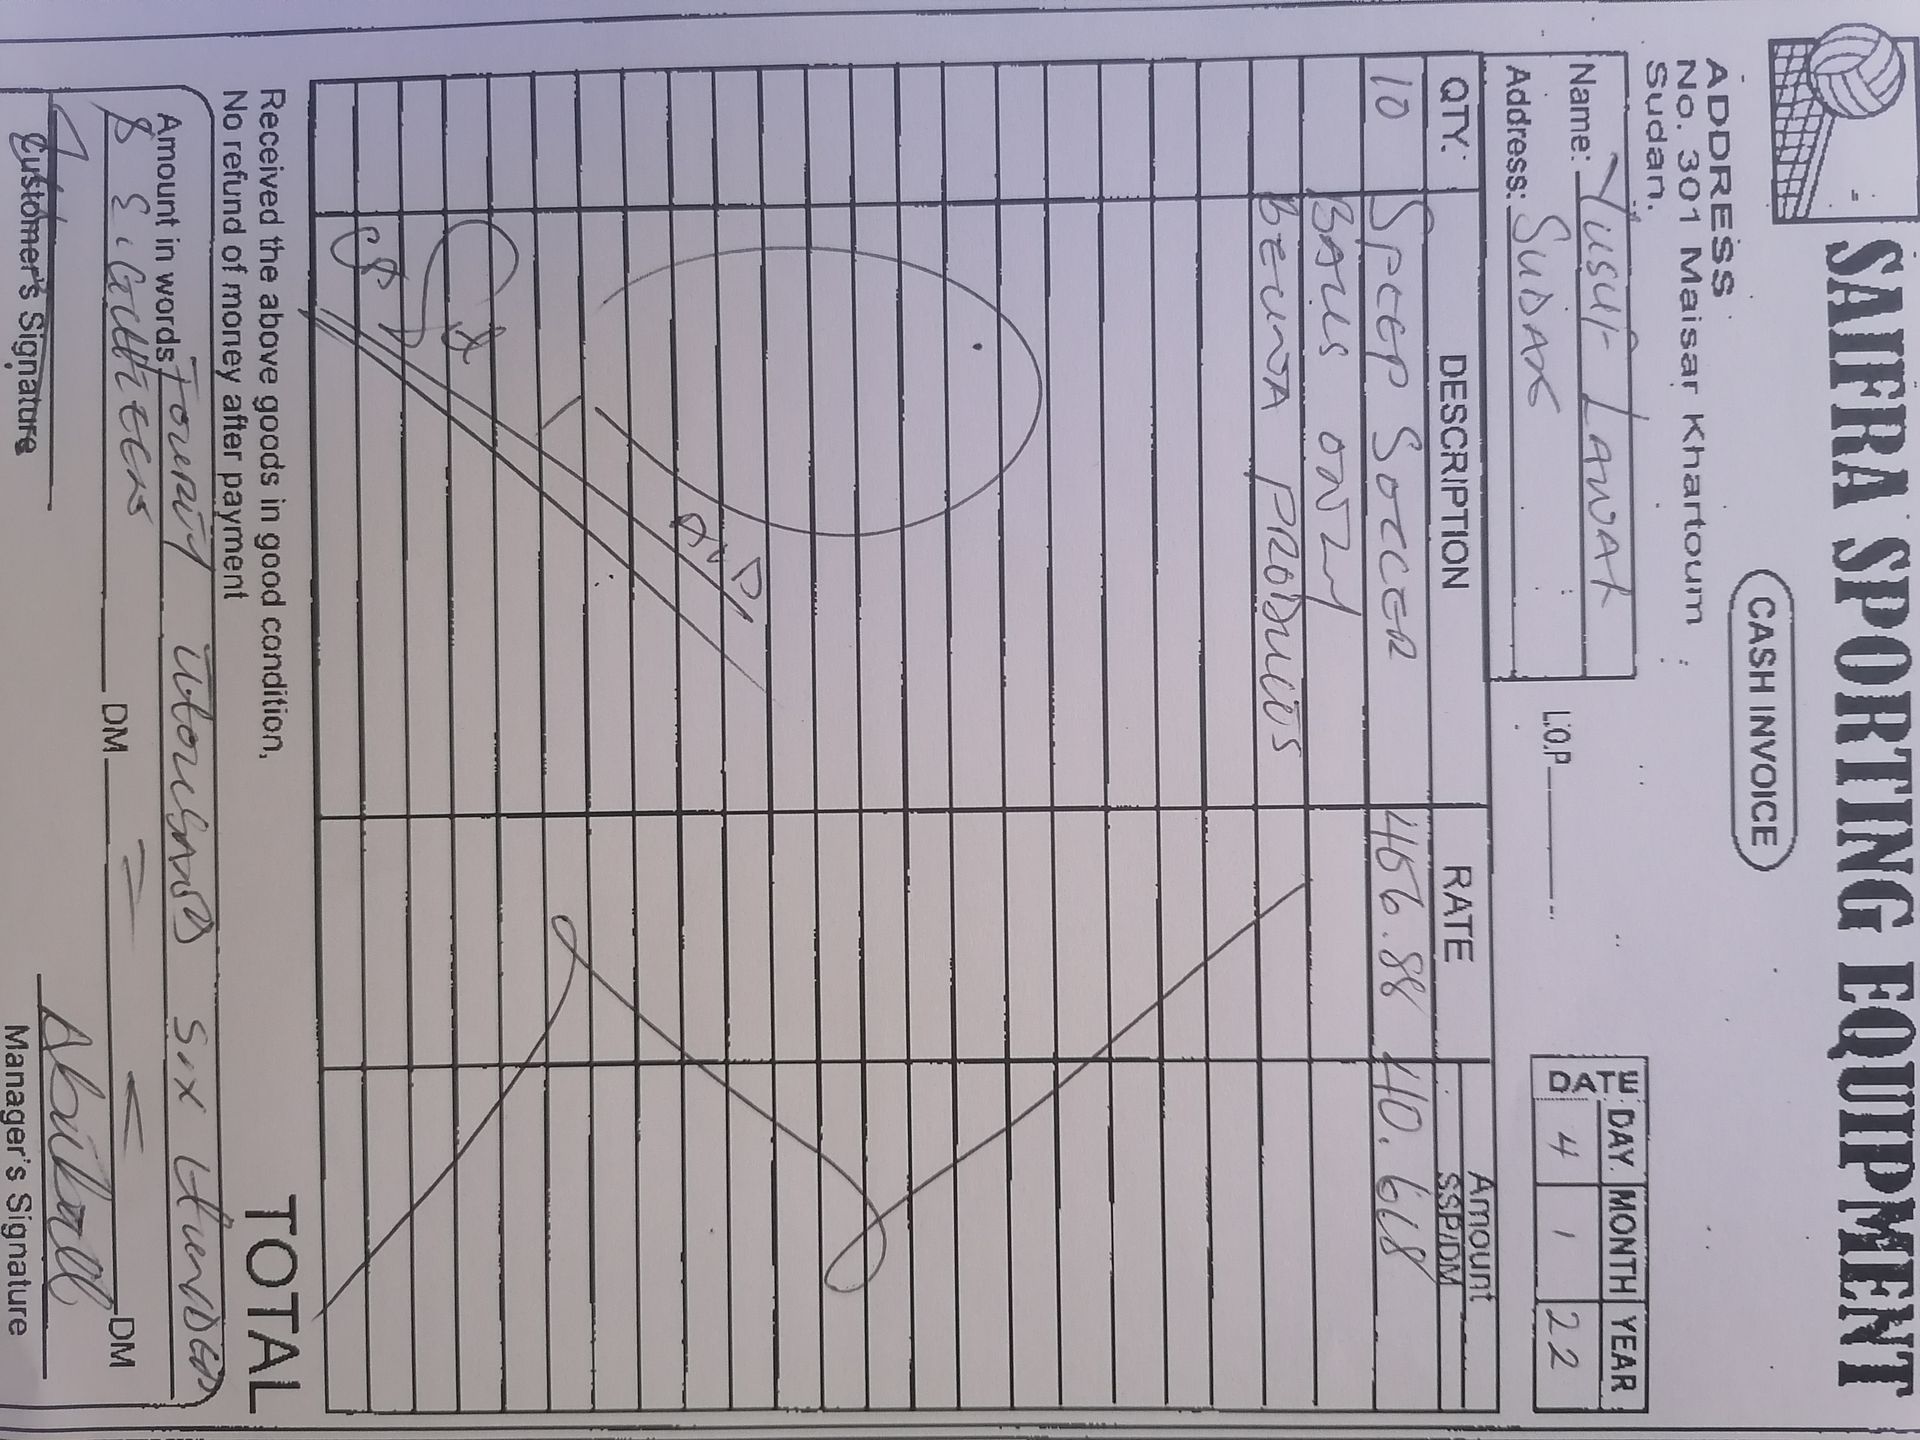 SAIFRA SPORTING EQUIPMENT
CASH INVOICE
ADDRESS
No. 301 Maisar Khartoum
Sudan.
Name: Yusuf Lawat
Address: SUDAN
L.O.P
DATE DAY. MONTH YEAR
4 1 22
QTY. DESCRIPTION RATE Amount SSP/DM
10 SPEED SOCCER 456.88 40.618
BALLS ONLY
BELWA PRODUCTS
Received the above goods in good condition,
No refund of money after payment
TOTAL
Amount in words Fourty thousand six Hundred
& Eighteen DM DM
Customer's Signature Manager's Signature